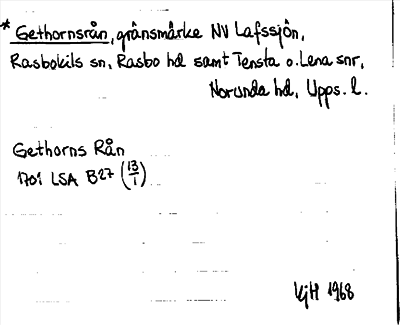 * Gethornsrån, gränsmärke NV Lafssjön,
Rasbokils sn, Rasbo hd samt Tensta o. Lena snr,
Norunda hd, Upps. l.
Gethorns Rån
1701 LSA B27 (13/1)
KjH 1968